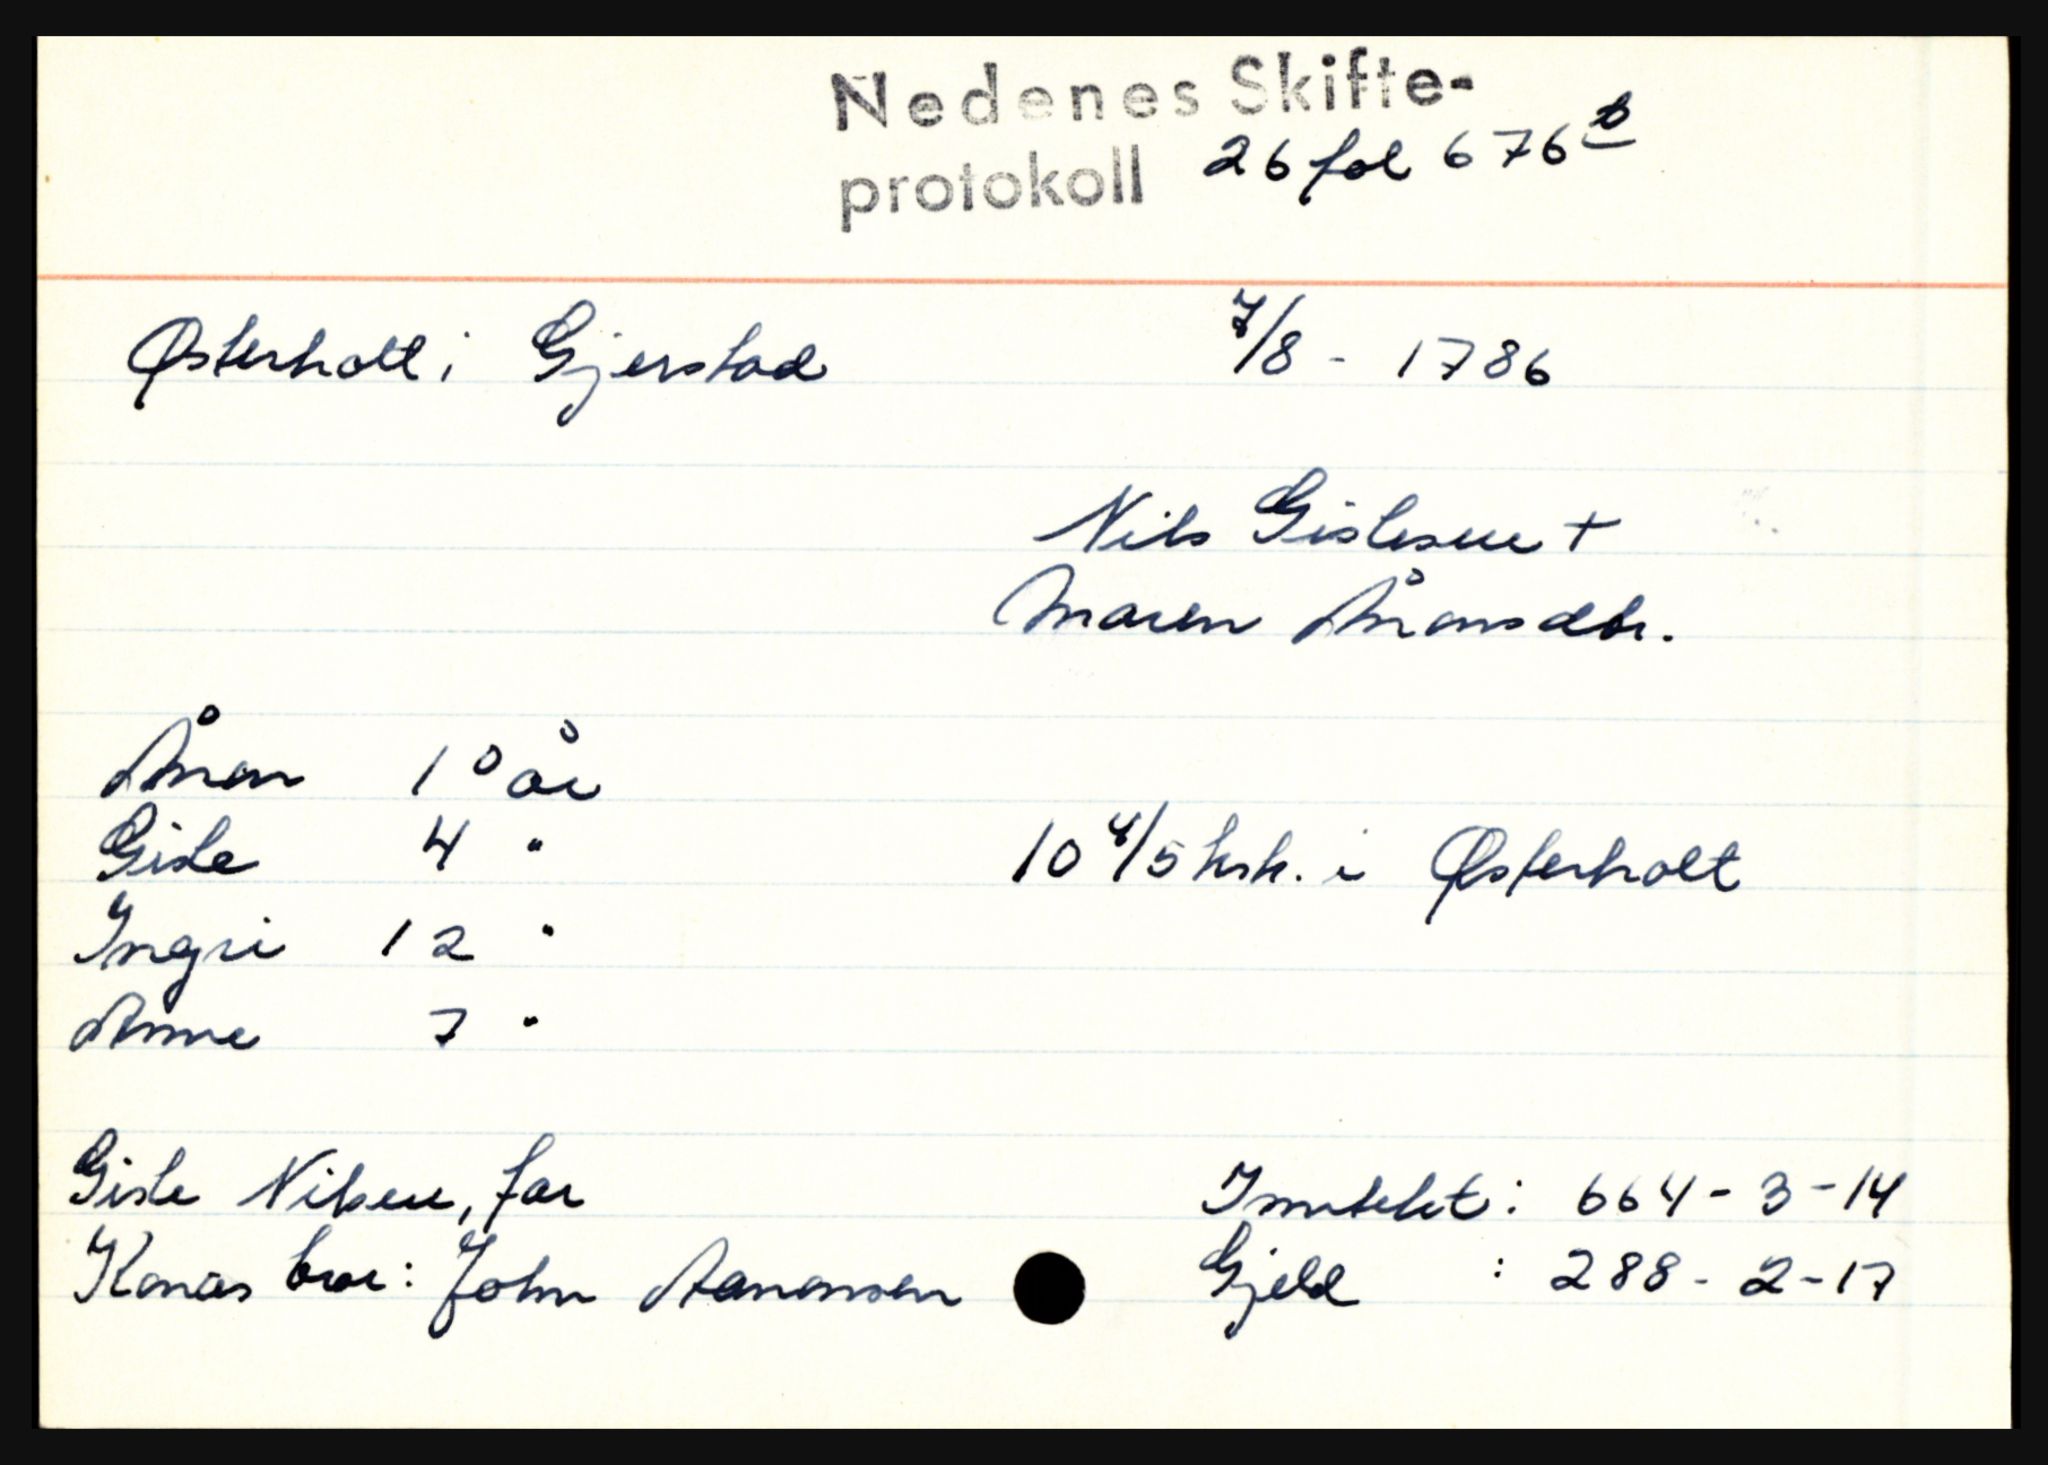 Nedenes Skifte-
protokoll 26 fol 676 b
Østerholt i Gjerstad 7/8 - 1786
Nils Gislesen +
Maren Ånonsdtr.
Ånon 10 år
Gisle 4 "
10 4/5 ksk. i Østerholt
Ingri 12 "
Anne 7 "
Gisle Nilsen, far
Innteket : 664 - 3 - 14
Konas bror : John Aanonsen
Gjeld : 288 - 2 - 17